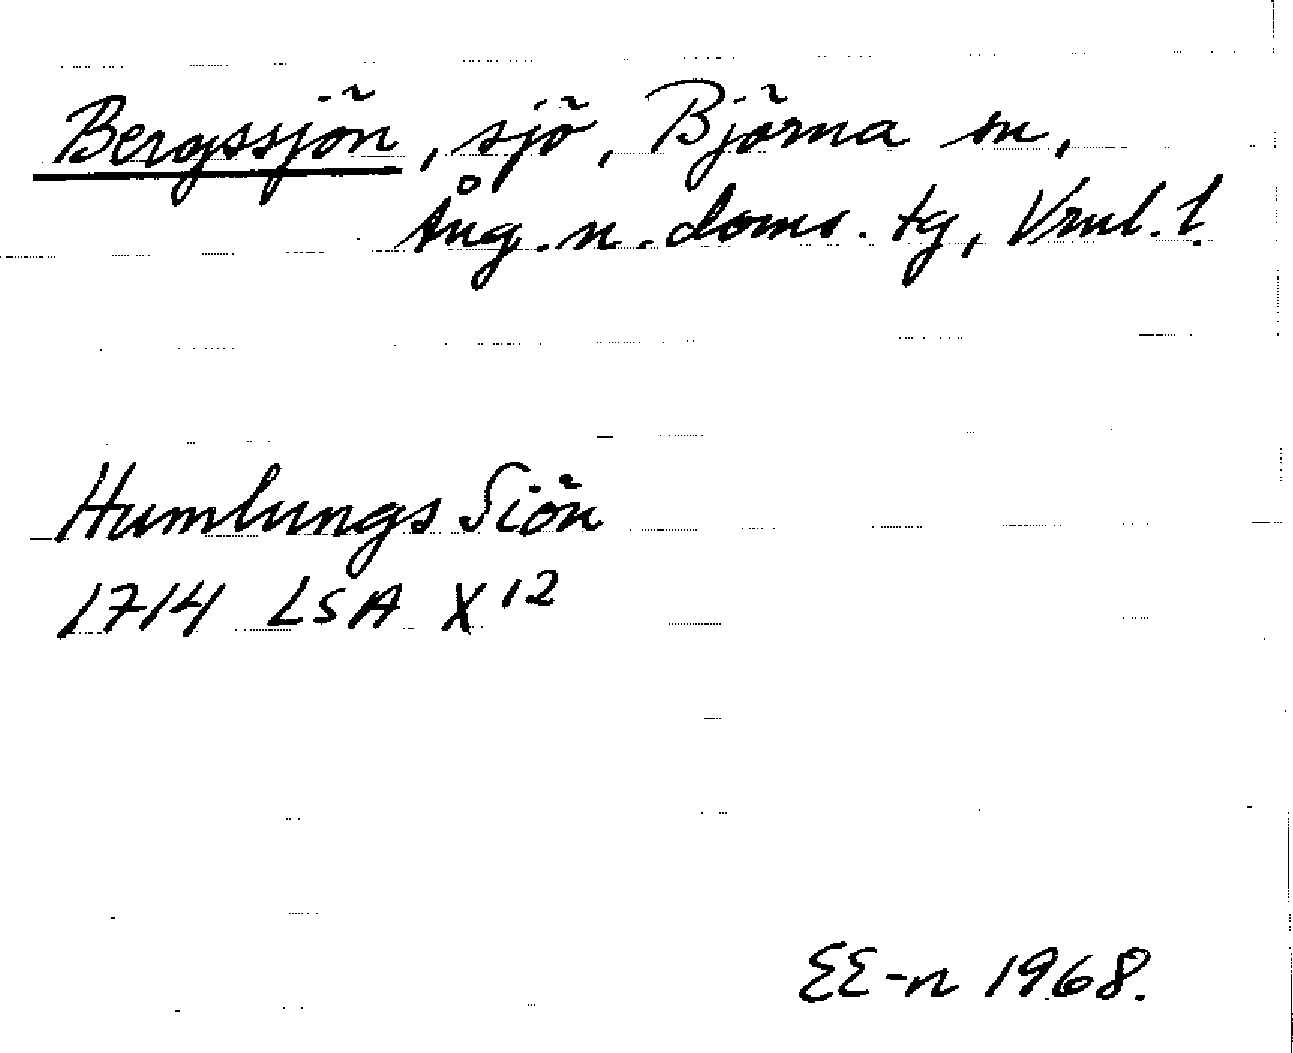 Bergssjön, sjö, Björna sn,
Ång. n. doms. tg, Vrnl. l.
Humlungs Siön
1714 LSA X 12
EE-n 1968.